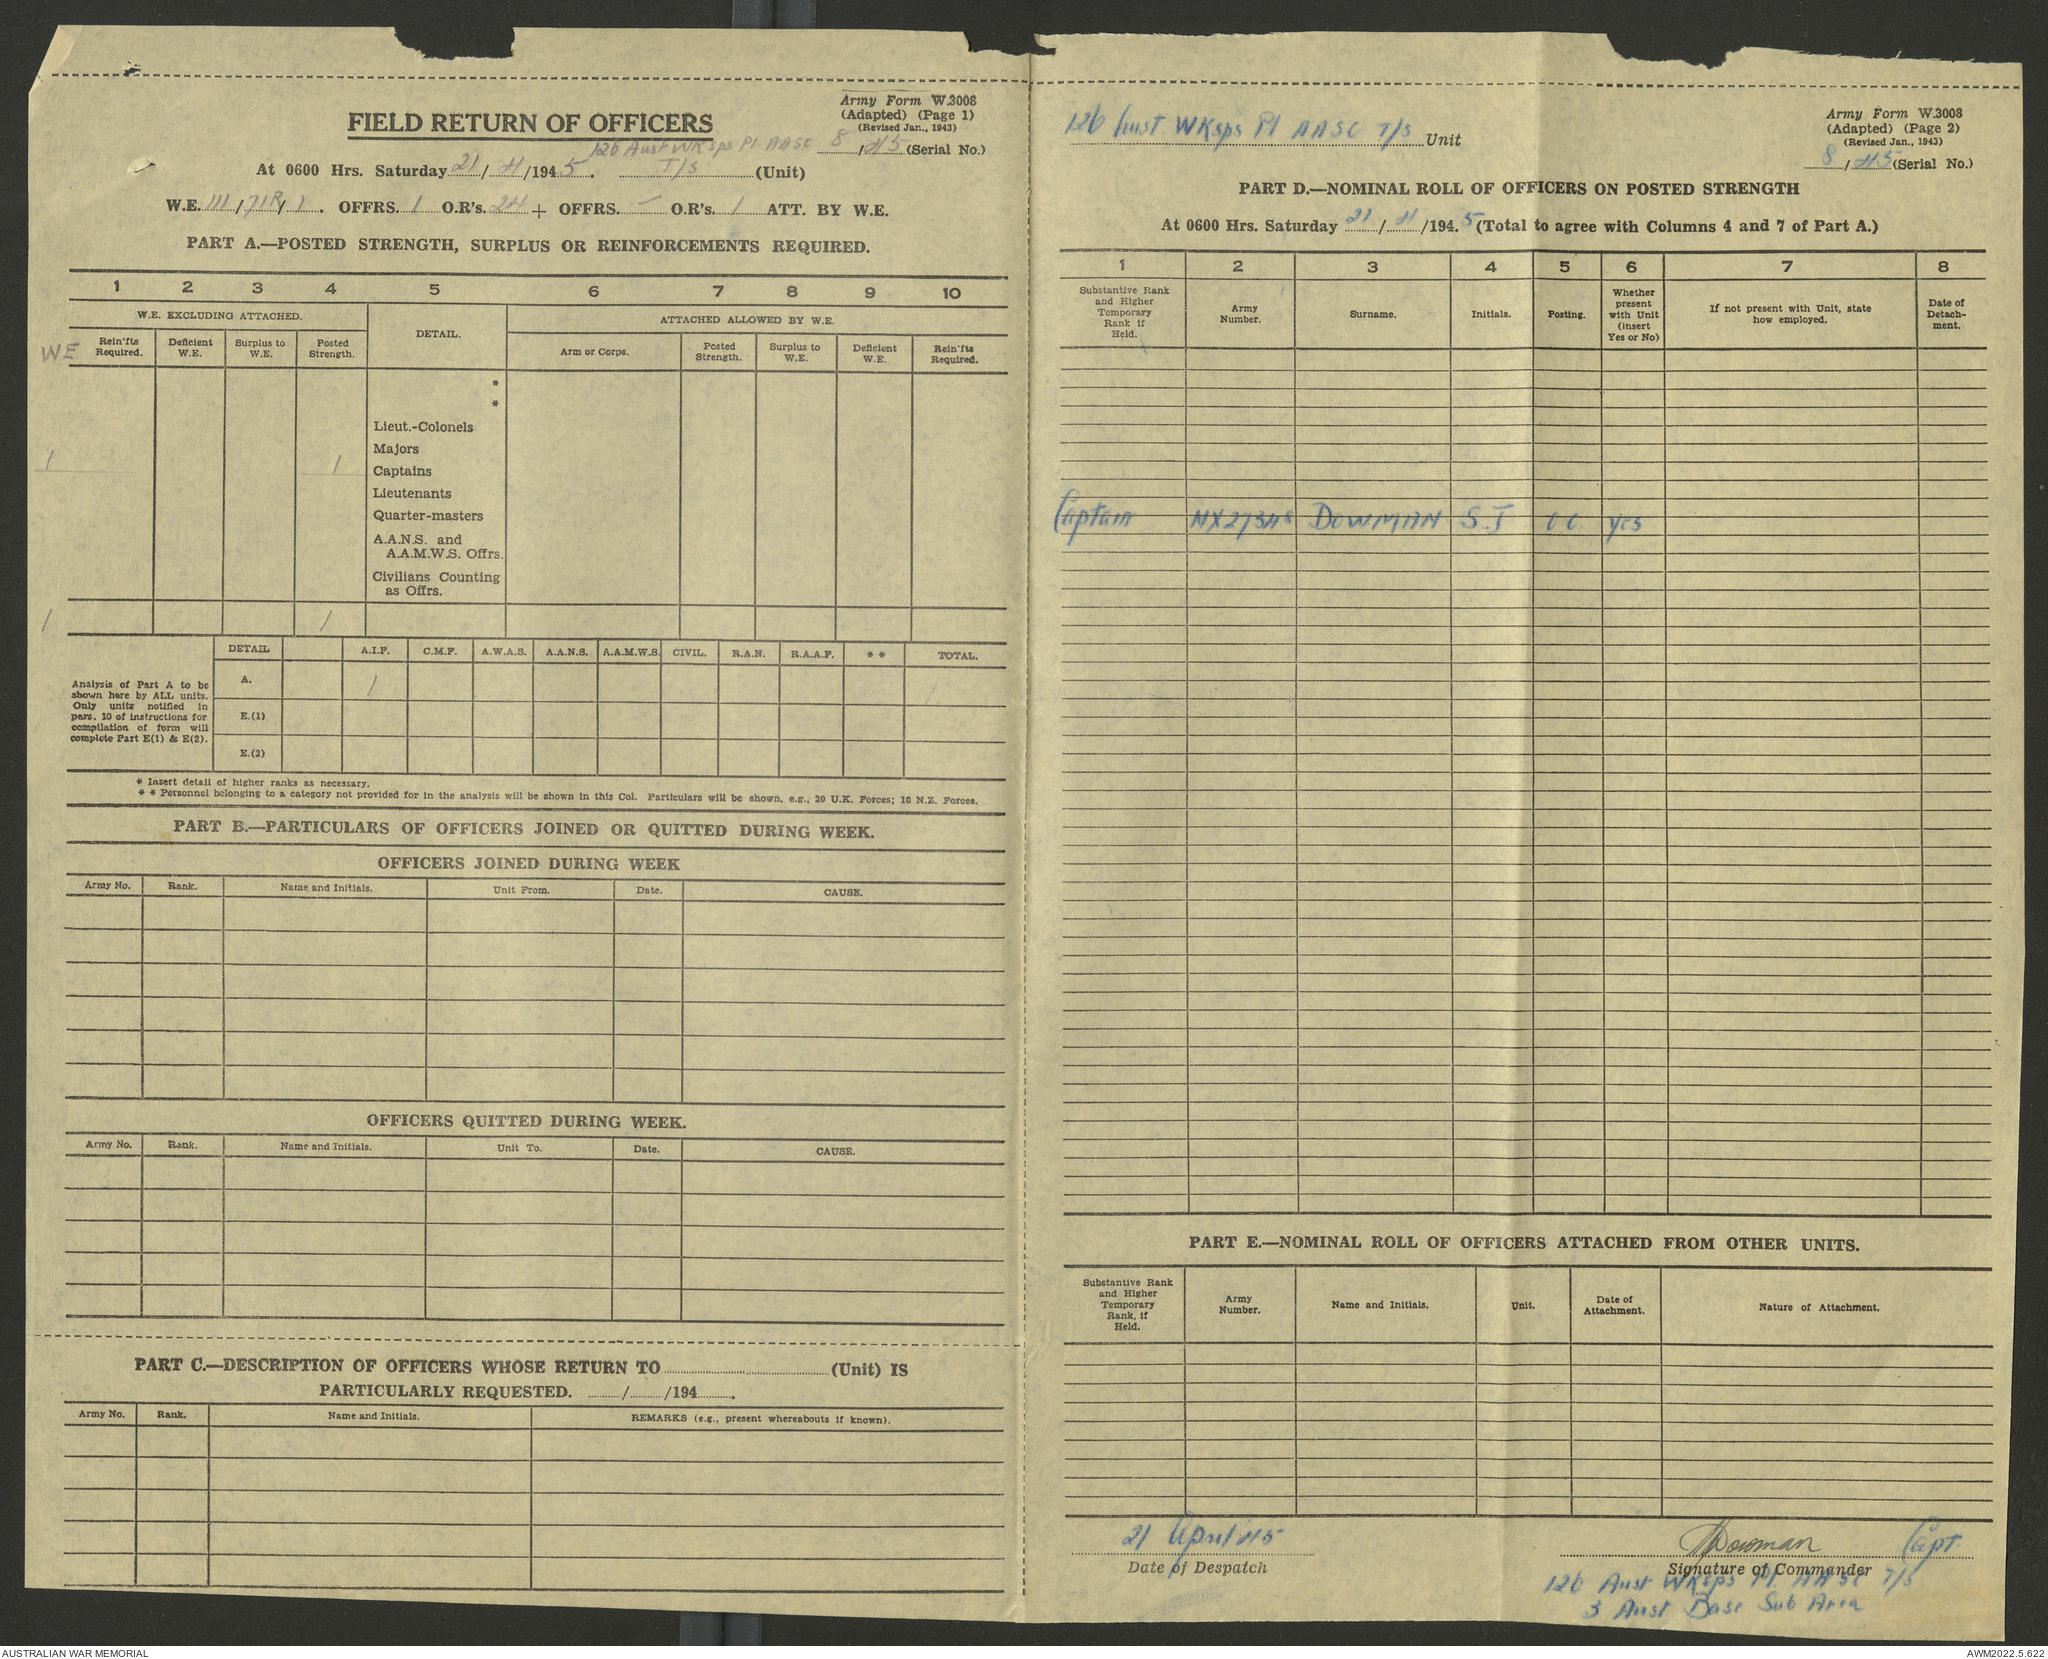 Army Form W.3008
(Adapted) (Page 1)
(Revised Jan., 1943)
FIELD RETURN OF OFFICERS
8/45 (Serial No.)
126 Aust WKsps Pl AASC
At 0600 Hrs. Saturday 21/4/1945. T/S (Unit)
W.E. 111/71R/1. OFFRS. 1 O.R's. 24 + OFFRS. — O.R's. 1 ATT. BY W.E.
PART A.—POSTED STRENGTH, SURPLUS OR REINFORCEMENTS REQUIRED.
1 2 3 4 5 6 7 8 9 10
W.E. EXCLUDING ATTACHED. DETAIL. ATTACHED ALLOWED BY W.E.
WE
Rein'fts Required. Deficient W.E. Surplus to W.E. Posted Strength. Arm or Corps. Posted Strength. Surplus to W.E. Deficient W.E. Rein'fts Required.
*
*
Lieut.-Colonels
Majors
1 1 Captains
Lieutenants
Quarter-masters
A.A.N.S. and
A.A.M.W.S. Offrs.
Civilians Counting
as Offrs.
1 1
DETAIL A.I.F. C.M.F. A.W.A.S. A.A.N.S. A.A.M.W.S. CIVIL. R.A.N. R.A.A.F. * * TOTAL.
A. 1 1
E.(1)
E.(2)
Analysis of Part A to be
shown here by ALL units.
Only units notified in
para. 10 of instructions for
compilation of form will
complete Part E(1) & E(2).
* Insert detail of higher ranks as necessary.
* * Personnel belonging to a category not provided for in the analysis will be shown in this Col. Particulars will be shown, e.g., 20 U.K. Forces; 10 N.Z. Forces.
PART B.—PARTICULARS OF OFFICERS JOINED OR QUITTED DURING WEEK.
OFFICERS JOINED DURING WEEK
Army No. Rank. Name and Initials. Unit From. Date. CAUSE.
OFFICERS QUITTED DURING WEEK.
Army No. Rank. Name and Initials. Unit To. Date. CAUSE.
PART C.—DESCRIPTION OF OFFICERS WHOSE RETURN TO (Unit) IS
PARTICULARLY REQUESTED. / /194 .
Army No. Rank. Name and Initials. REMARKS (e.g., present whereabouts if known).
Army Form W.3008
(Adapted) (Page 2)
(Revised Jan., 1943)
126 Aust WKsps Pl AASC T/S Unit
8/45 (Serial No.)
PART D.—NOMINAL ROLL OF OFFICERS ON POSTED STRENGTH
At 0600 Hrs. Saturday 21/4/194.5 (Total to agree with Columns 4 and 7 of Part A.)
1 2 3 4 5 6 7 8
Substantive Rank and Higher Temporary Rank if Held. Army Number. Surname. Initials. Posting. Whether present with Unit (insert Yes or No) If not present with Unit, state how employed. Date of Detach-ment.
Captain NX27348 DOWMAN S.J OC yes
PART E.—NOMINAL ROLL OF OFFICERS ATTACHED FROM OTHER UNITS.
Substantive Rank and Higher Temporary Rank, if Held. Army Number. Name and Initials. Unit. Date of Attachment. Nature of Attachment.
21 April 45
Date of Despatch
SJDowman Capt
Signature of Commander
126 Aust WKsps Pl AASC T/S
3 Aust Base Sub Area
AUSTRALIAN WAR MEMORIAL
AWM2022.5.622